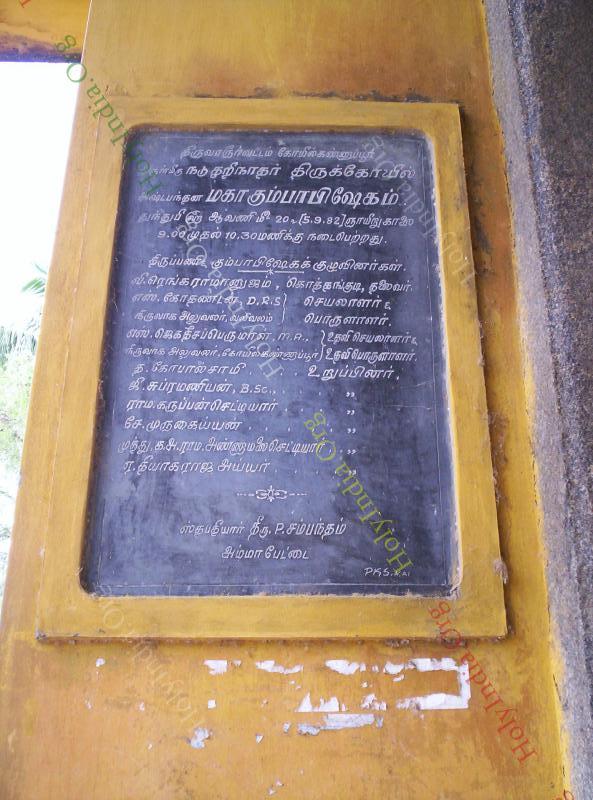 திருவாரூர்வட்டம் கோயில்கண்ணாப்பூர்
நடுதறிநாதர் திருக்கோயில்
அஷ்டபந்தன மகாகும்பாபிஷேகம்.
துந்துபி௵ ஆவணிமீ 20௳ [5.9.82] ஞாயிறுகாலை
9.00முதல் 10.30மணிக்கு நடைபெற்றது.
திருப்பணி கும்பாபிஷேகக் குழுவினர்கள்.
வி.ரெங்கராமானுஜம், கொத்தங்குடி, தலைவர்.
எஸ். கோதண்டன், D.R.S } செயலாளர் &
நிருவாக அலுவலர், வலிவலம் பொருளாளர்.
எஸ். ஜெகதீசப்பெருமாள். M.A., } உதவி செயலாளர் &
நிருவாக அலுவலர், கோயில்கண்ணாப்பூர் } உதவி பொருளாளர்.
த. கோபால்சாமி . . உறுப்பினர்.
ஜீ. சுப்ரமணியன், B.Sc., . . ,,
ராம. கருப்பன்செட்டியார் . ,,
சே. முருகைய்யன் . . ,,
முத்து. க.அ. ராம. அண்ணாமலைசெட்டியார் . ,,
ர. தியாகராஜ அய்யர் . . ,,
ஸ்தபதியார் திரு. P. சம்பந்தம்
அம்மாபேட்டை
HolyIndia.Org
HolyIndia.Org
HolyIndia.Org
HolyIndia.Org
HolyIndia.Org
HolyIndia.Org
HolyIndia.Org